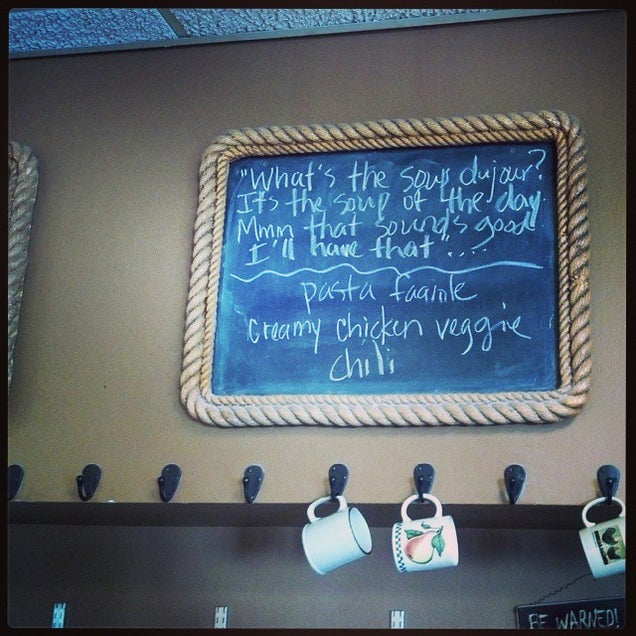 "What's the soup dujour?
It's the soup of the day.
Mmm that sound's good
I'll have that"....
pasta fagiole
creamy chicken veggie
chili
BE WARNED!